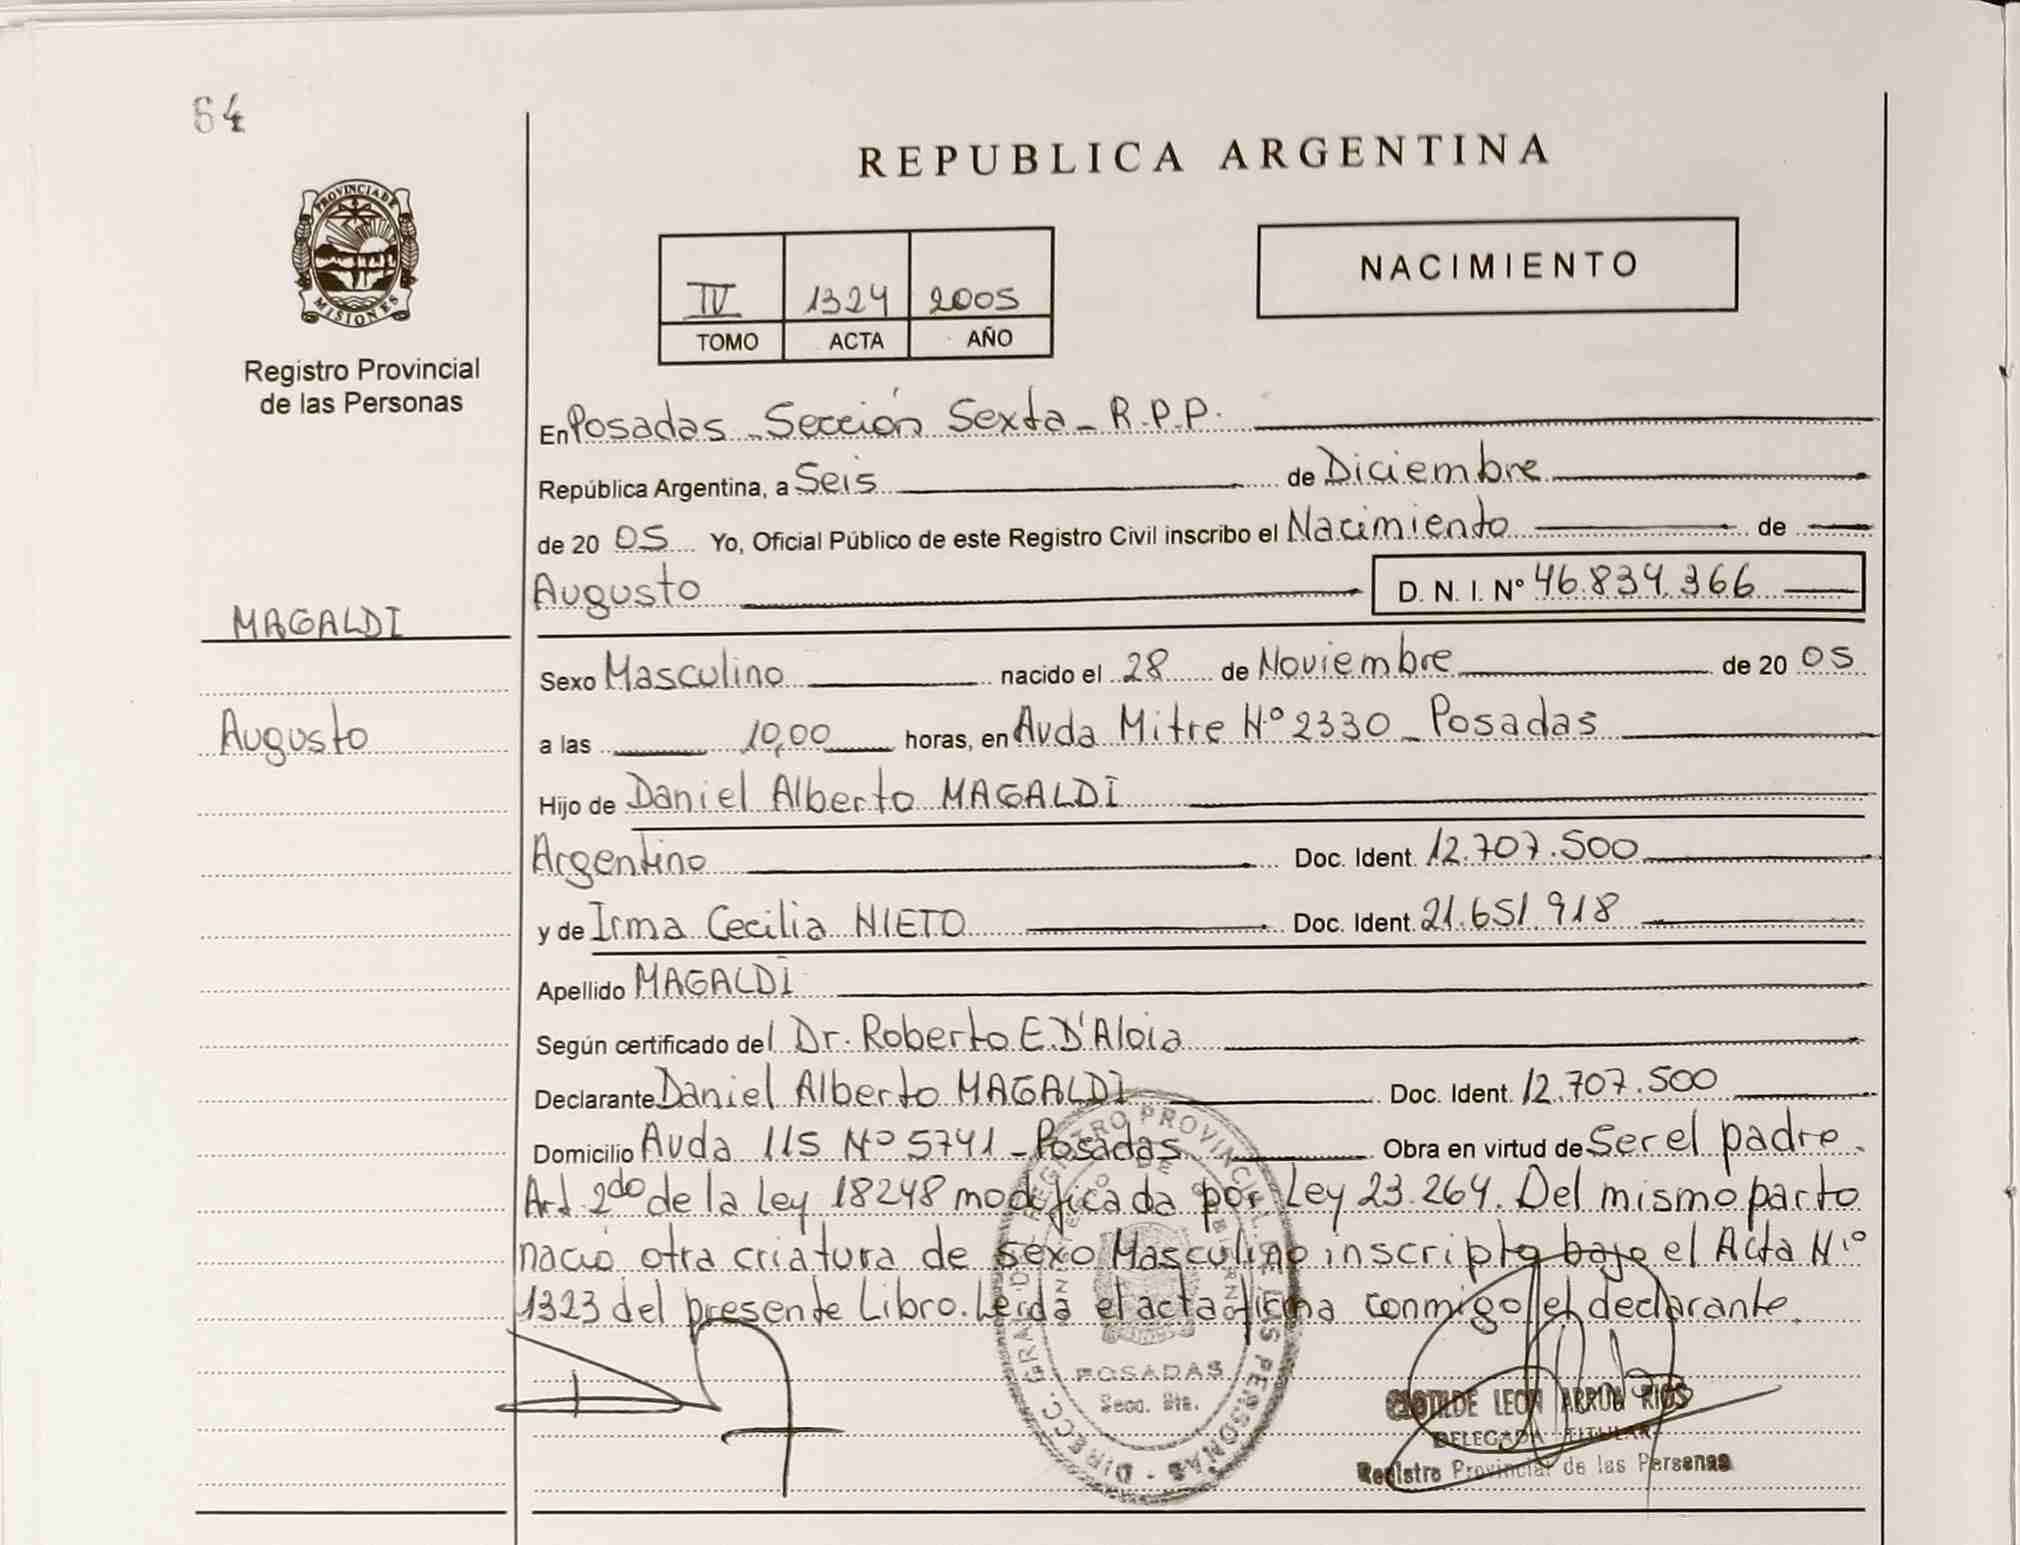 64
PROVINCIA DE
MISIONES
Registro Provincial
de las Personas
MAGALDI
Augusto
REPUBLICA ARGENTINA
IV 1324 2005
TOMO ACTA AÑO
NACIMIENTO
En Posadas - Sección Sexta - R.P.P.
República Argentina, a Seis de Diciembre
de 2005 Yo, Oficial Público de este Registro Civil inscribo el Nacimiento de
Augusto D. N. I. Nº 46.834.366
Sexo Masculino nacido el 28 de Noviembre de 2005
a las 10,00 horas, en Avda Mitre Nº 2330 - Posadas
Hijo de Daniel Alberto MAGALDI
Argentino Doc. Ident. 12.707.500
y de Irma Cecilia NIETO Doc. Ident. 21.651.918
Apellido MAGALDI
Según certificado del Dr. Roberto E. D'Aloia
Declarante Daniel Alberto MAGALDI Doc. Ident. 12.707.500
Domicilio Avda 115 Nº 5741 - Posadas Obra en virtud de Ser el padre.
Art. 2do de la Ley 18248 modificada por Ley 23.264. Del mismo parto
nació otra criatura de sexo Masculino inscripta bajo el Acta Nº
1323 del presente Libro. Leída el acta firma conmigo el declarante.
DIRECC. GRAL. DEL REGISTRO PROVINCIAL DE LAS PERSONAS
POSADAS
Secc. 6ta.
CLOTILDE LEON ARRUA RIOS
DELEGADA TITULAR
Registro Provincial de las Personas